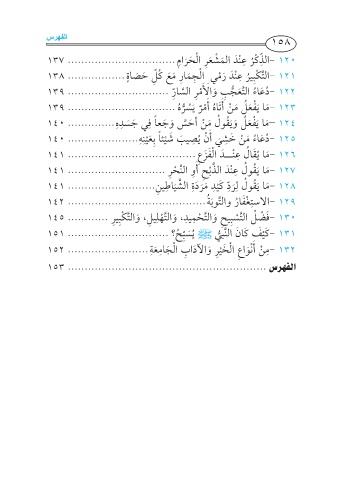 الفهرس
١٥٨
١٢٠ -الذِّكْرُ عِنْدَ المَشْعَرِ الْحَرَامِ ............................ ١٣٧
١٢١ -التَّكْبِيرُ عِنْدَ رَمْيِ الْجِمَارِ مَعَ كُلِّ حَصَاةٍ ................ ١٣٨
١٢٢ -دُعَاءُ التَّعَجُّبِ وَالأَمْرِ السَّارِّ ............................ ١٣٩
١٢٣ -مَا يَفْعَلُ مَنْ أَتَاهُ أَمْرٌ يَسُرُّهُ ............................ ١٣٩
١٢٤ -مَا يَفْعَلُ وَيَقُولُ مَنْ أَحَسَّ وَجَعاً فِي جَسَدِهِ ............. ١٤٠
١٢٥ -دُعَاءُ مَنْ خَشِيَ أَنْ يُصِيبَ شَيْئاً بِعَيْنِهِ .................. ١٤٠
١٢٦ -مَا يُقَالُ عِنْـــدَ الْفَزَعِ ................................ ١٤١
١٢٧ -مَا يَقُولُ عِنْدَ الذَّبْحِ أَوِ النَّحْرِ ........................ ١٤١
١٢٨ -مَا يَقُولُ لِرَدِّ كَيْدِ مَرَدَةِ الشَّيَاطِينِ ..................... ١٤١
١٢٩ -الاسْتِغْفَارُ وَالتَّوبَةُ .................................. ١٤٢
١٣٠ -فَضْلُ التَّسْبِيحِ وَالتَّحْمِيدِ، وَالتَّهْلِيلِ، وَالتَّكْبِيرِ ............ ١٤٥
١٣١ -كَيْفَ كَانَ النَّبِيُّ ﷺ يُسَبِّحُ؟ ........................... ١٥١
١٣٢ -مِنْ أَنْوَاعِ الْخَيْرِ وَالآدَابِ الْجَامِعَةِ ..................... ١٥٢
الفهرس .................................................... ١٥٣